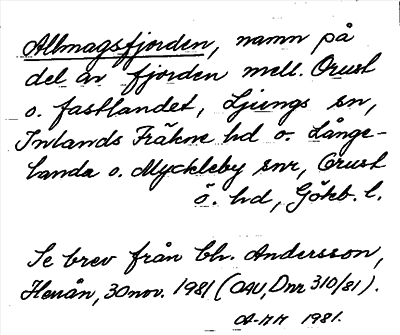 Allmagsfjorden, namn på
del av fjorden mell. Orust
o. fastlandet, Ljungs sn,
Inlands Fräkne hd o. Långe-
landa o. Myckleby snr, Orust
ö. hd, Göteb. l.
Se brev från bl. Andersson,
Henån, 30 nov. 1981 (OAU, Dnr 310/81).
1981.